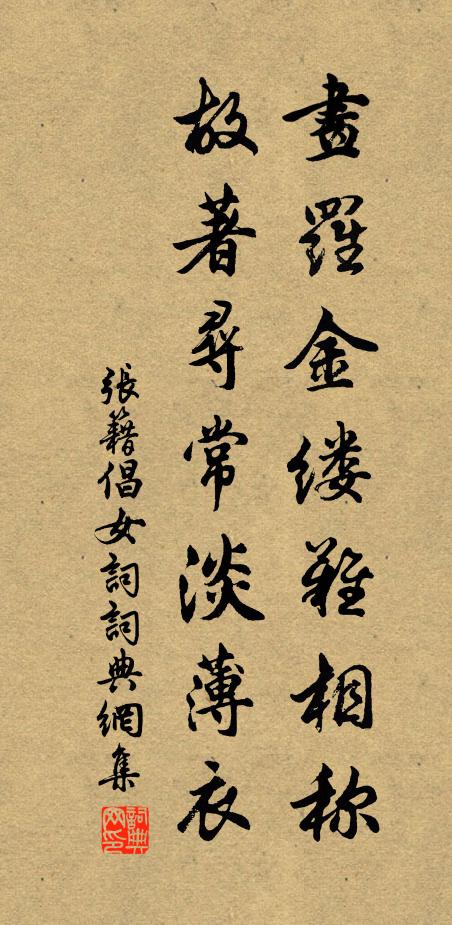 畫羅金缕難相称
故著尋常淡薄衣
張籍倡女詞詞典網集
詞典网印